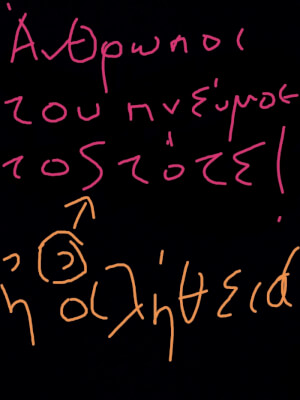 Άνθρωποι
του πνεύμα
τος τότε!
ἠ ἀλήθεια